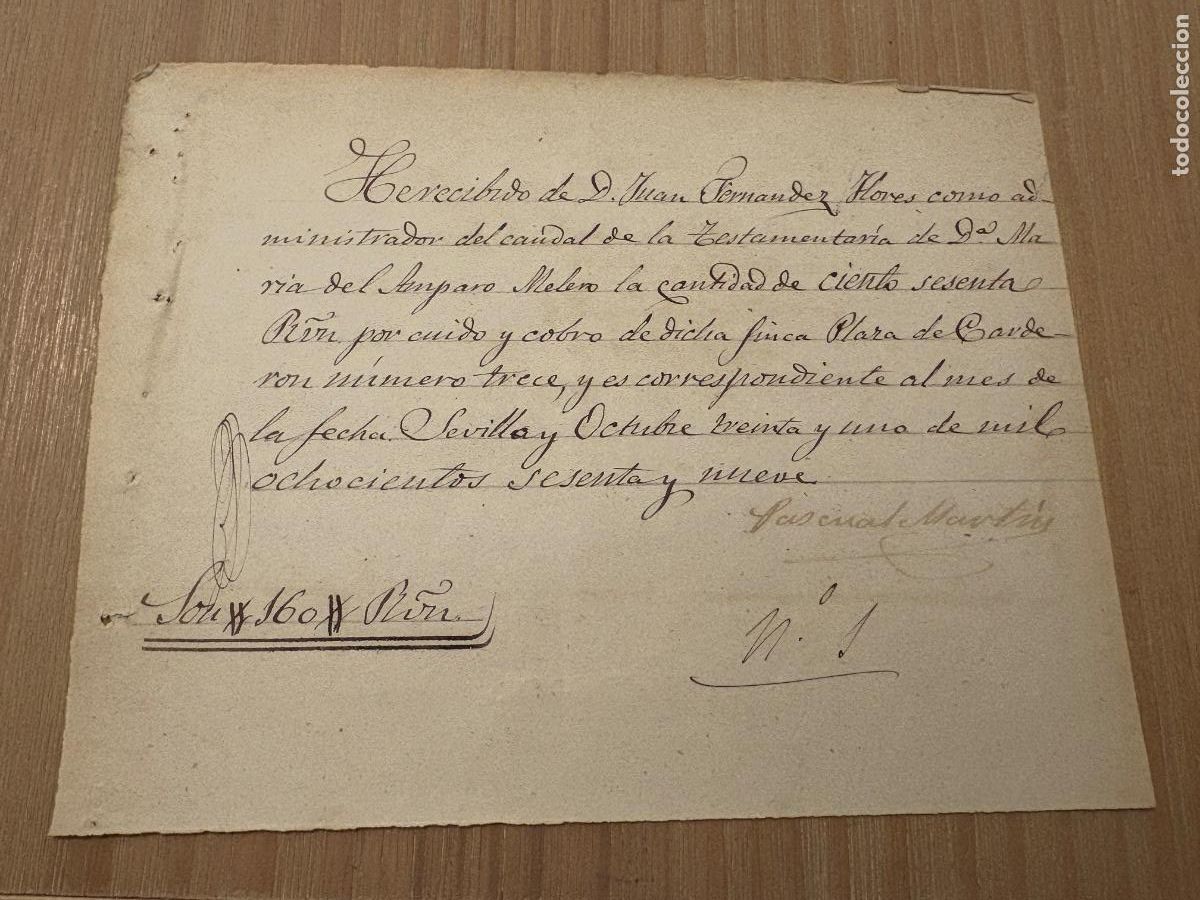 He recibido de D. Juan Fernandez Flores como ad-
ministrador del caudal de la Testamentaría de Dª Ma
ria del Amparo Melero la cantidad de ciento sesenta
Rvn por cuido y cobro de dicha finca Plaza de Carde-
ron número trece, y es correspondiente al mes de
la fecha. Sevilla y Octubre treinta y uno de mil
ochocientos sesenta y nueve
Pascual Martín
Son # 160 # Rvn.
N.º 1
todocoleccion